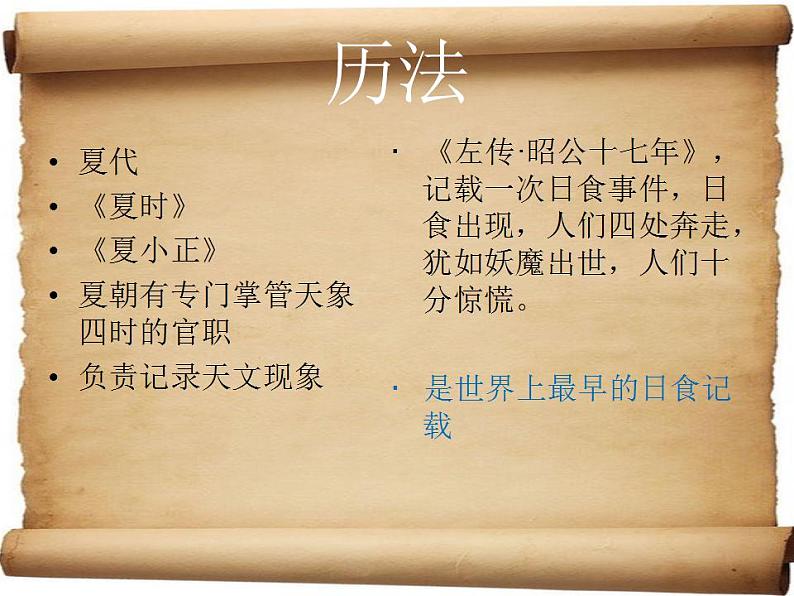 历法
• 夏代
• 《夏时》
• 《夏小正》
• 夏朝有专门掌管天象
四时的官职
• 负责记录天文现象
· 《左传·昭公十七年》，
记载一次日食事件，日
食出现，人们四处奔走，
犹如妖魔出世，人们十
分惊慌。
· 是世界上最早的日食记
载